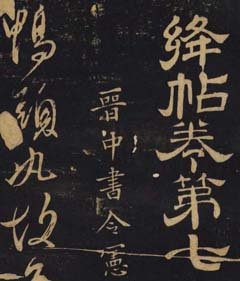 絳帖卷第七
晋中書令憲
鴨頭丸故